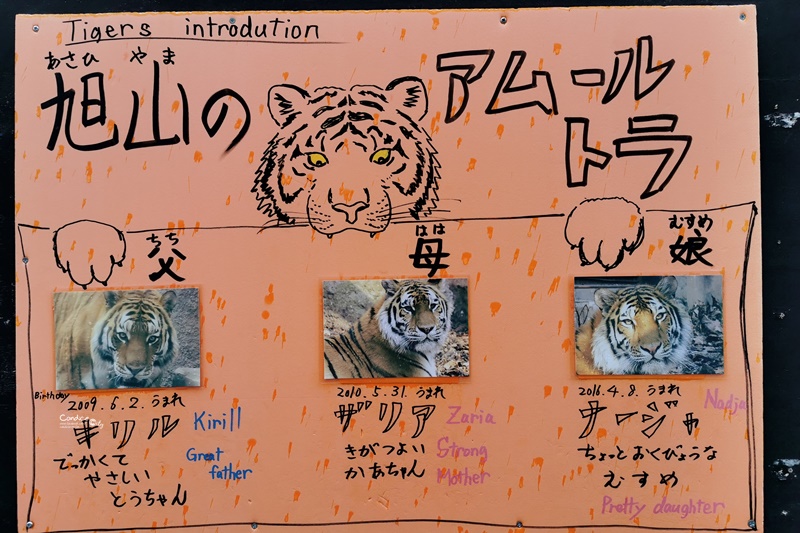 Tigers introdution
あさひ やま
旭山の
アムール
トラ
ちち
父
Birthday
2009.6.2.うまれ
キリル
Kirill
でっかくて
やさしい
とうちゃん
Great
father
はは
母
2010.5.31.うまれ
ザリア
Zaria
きがつよい
かあちゃん
Strong
Mother
むすめ
娘
2016.4.8.うまれ
ナージャ
Nadja
ちょっとおくびょうな
むすめ
Pretty daughter